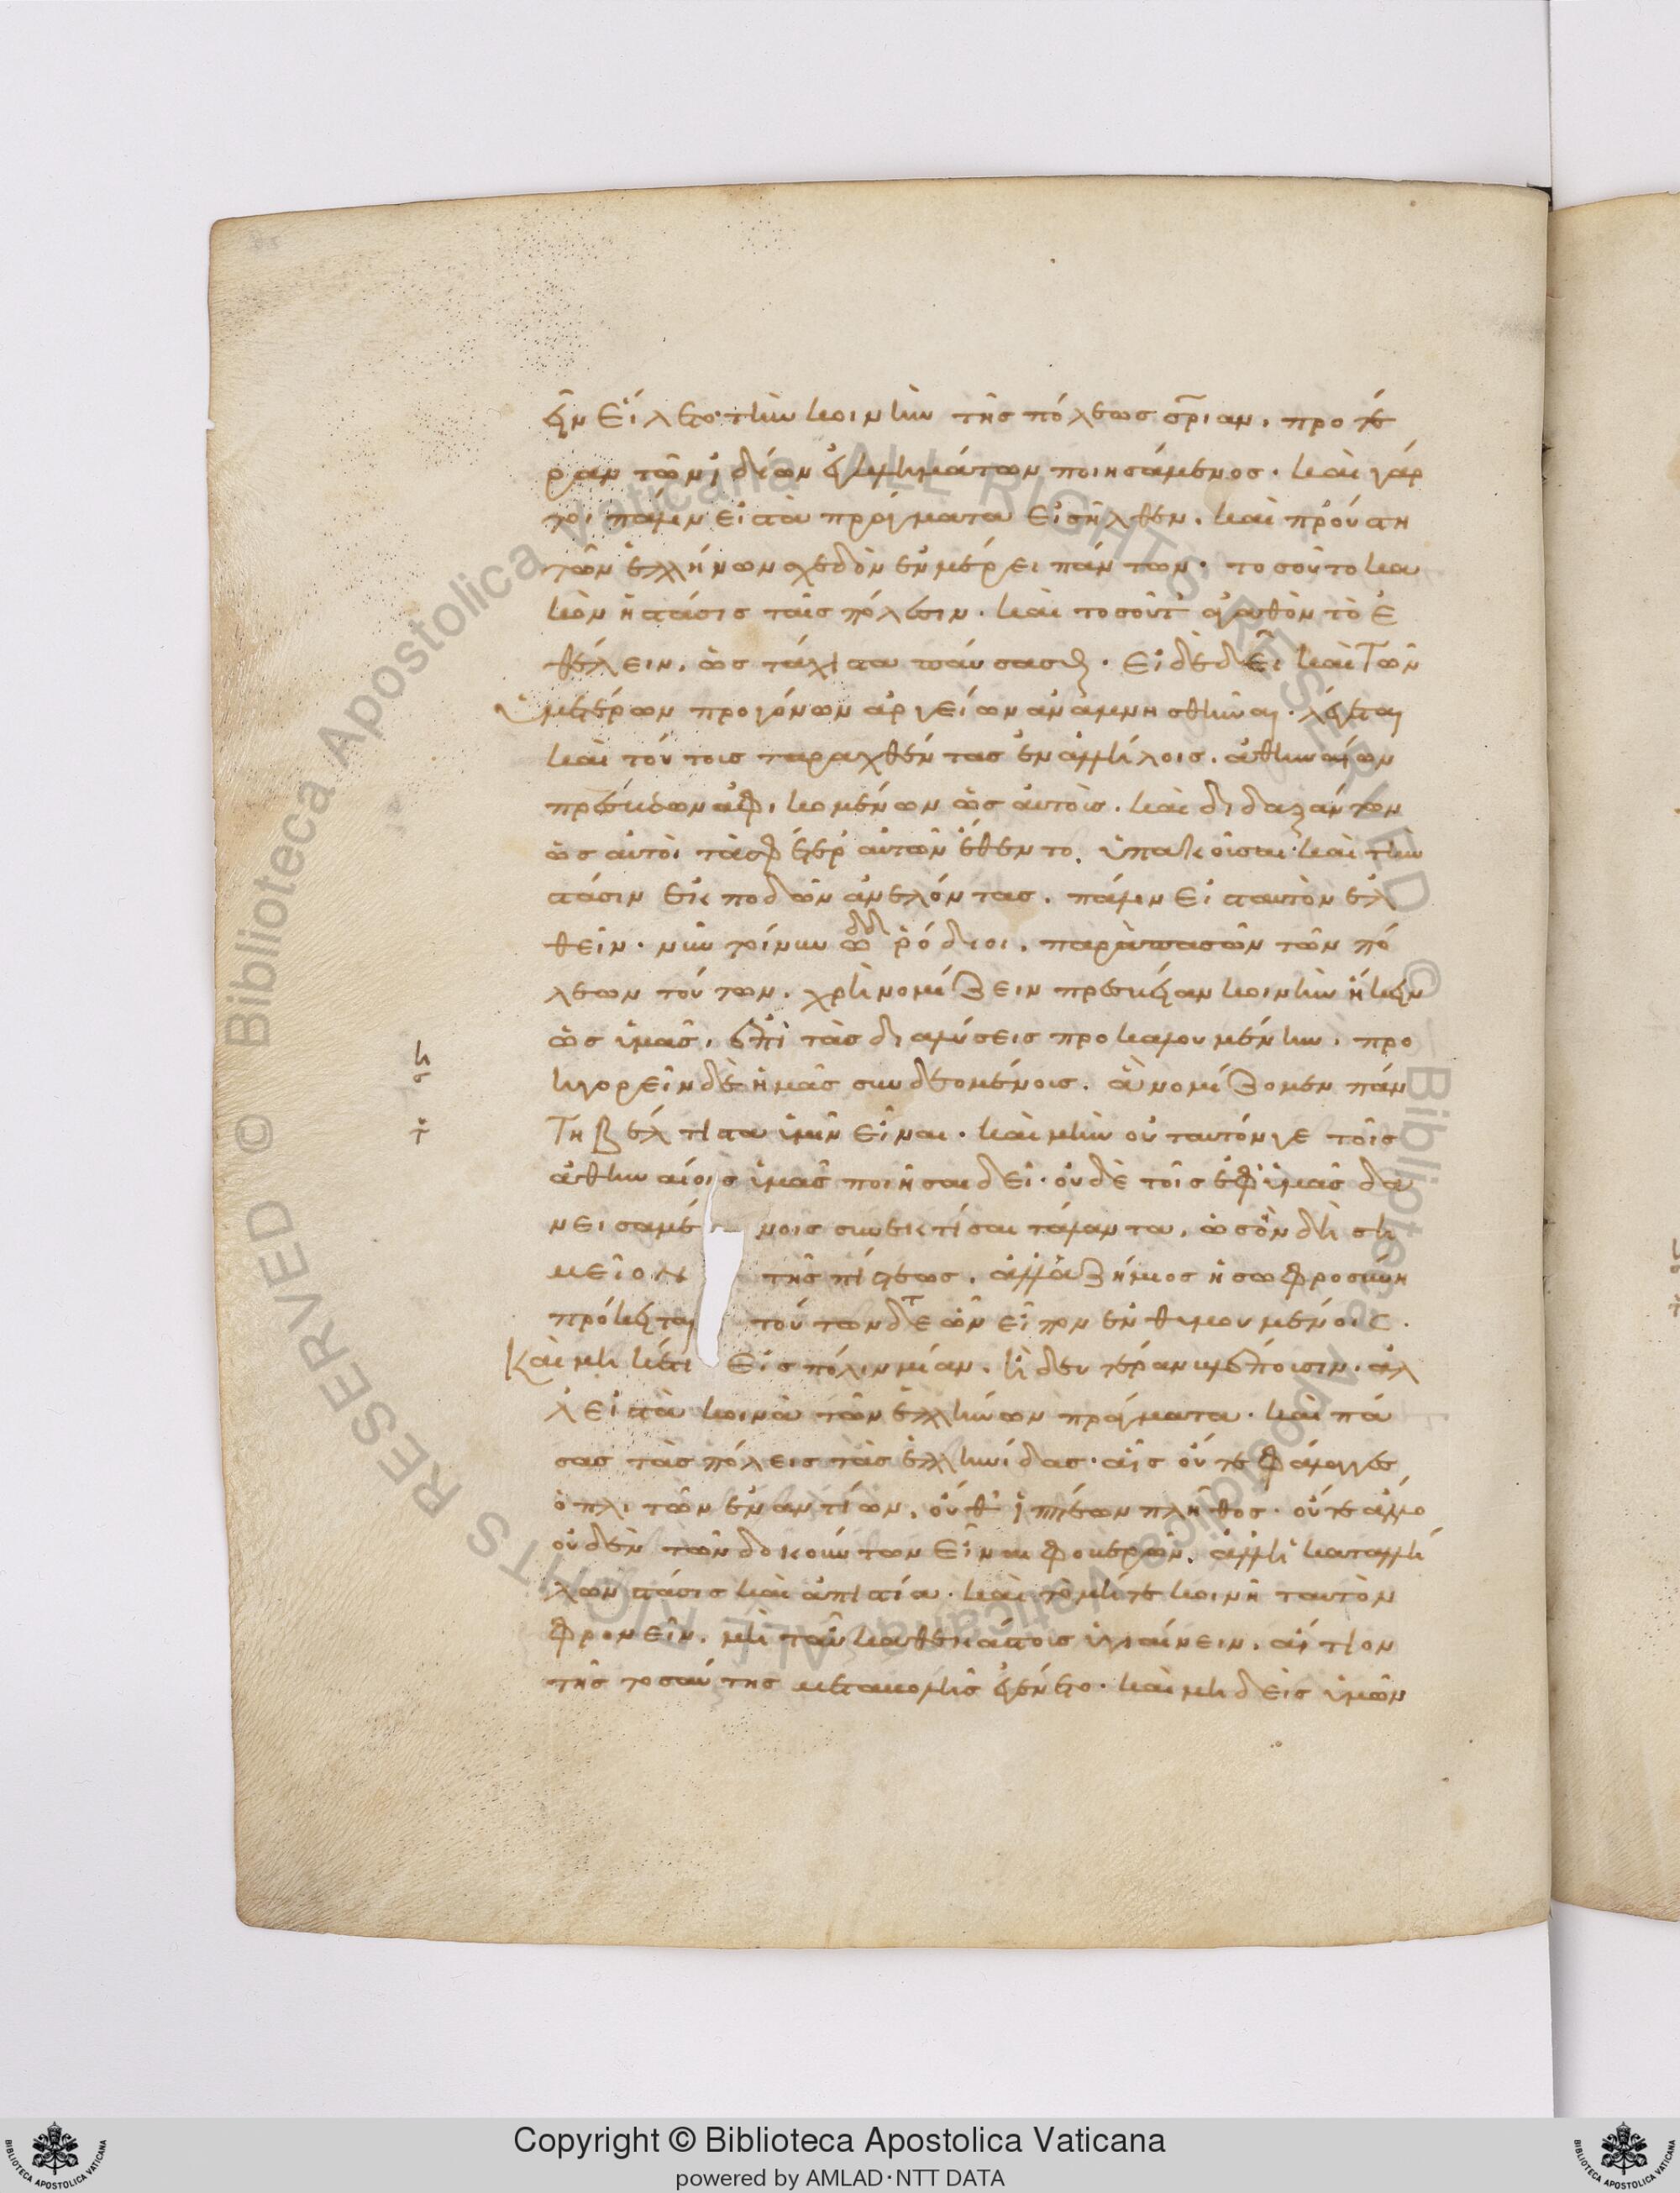 ἣν εἵλετο τὴν κοινὴν τῆς πόλεως σρίαν, προτέ
ραν τῶν ἰδίων ἐγκλημάτων ποιησάμενος. καὶ γάρ
τοι πάλιν εἰς τὰ πράγματα εἰσῆλθεν. καὶ προύστη
τῶν ἑλλήνων σχεδὸν ἐν μέρει πάντων. τοσοῦτο κα
κὸν ἡ στάσις ταῖς πόλεσιν. καὶ τοσοῦτ' ἀγαθὸν τὸ ἐ
θέλειν, ὡς τάχιστα παύσασθαι. εἰ δὲ δεῖ καὶ τῶν
ὑμετέρων προγόνων ἀργείων ἀναμνησθῆναι. λέγεται
καὶ τούτοις ταραχθέντας ἐν ἀλλήλοις, ἀθηναίων
πρέσβεων ἀφικομένων ὡς αὐτοὺς. καὶ διδαξάντων
ὡς αὐτοὶ τὰ σφέτερ' αὐτῶν ἔθεντο, ὑπακοῦσαι καὶ τὴν
στάσιν ἐκποδὼν ἀνελόντας, πάλιν εἰς ταυτὸν ἐλ
θεῖν. νῦν τοίνυν ὦ ἄνδρες ῥόδιοι, παρὰ πασῶν τῶν πό
λεων τούτων, χρὴ νομίζειν πρεσβείαν κοινὴν ἥκειν
ὡς ὑμᾶς, ἐπὶ τὰς διαλύσεις προκαλουμένην, προ
ηγορεῖν δὲ ἡμᾶς συνδεομένοις, ἃ νομίζομεν πάν
τη βέλτιστα ὑμῖν εἶναι. καὶ μὴν οὐ ταυτόν γε τοῖς
ἀθηναίοις ὑμᾶς ποιῆσαι δεῖ. οὐδὲ τοῖς ἐφ' ὑμᾶς δα
νεισαμένοις συνεκτίσαι τάλαντα, ὡσὸν δὴ ση
μεῖον τῆς πίστεως, ἀλλ' ἀζήμιος ἡ σωφροσύνη
πρόκειται τούτων δέ τε ὧν εἶπον ἐνθυμουμένοις.
Καὶ μὴ βλέπειν εἰς πόλιν μίαν, ἢ δευτέραν μετάποισιν, ἀλ
λ' εἰς τὰ κοινὰ τῶν ἑλλήνων πράγματα. καὶ πά
σας τὰς πόλεις τὰς ἑλληνίδας. αἷς οὔτε φάλαγγες
ὁπλιτῶν ἐναντίων, οὔθ' ἱππέων πλῆθος. οὔτε ἄλλο
οὐδὲν τῶν δοκούντων εἶναι φοβερῶν, ἀλλ' ἡ κατ' ἀλλή
λων στάσις καὶ ἀπιστία. καὶ τὸ μήτε κοινῇ ταυτὸν
φρονεῖν, μήτ' αὖ καθ' ἑκάστοις ὑγιαίνειν, αἴτιον
τῆς τοσαύτης μεταβολῆς ἐγένετο. καὶ μηδεὶς ὑμῶν